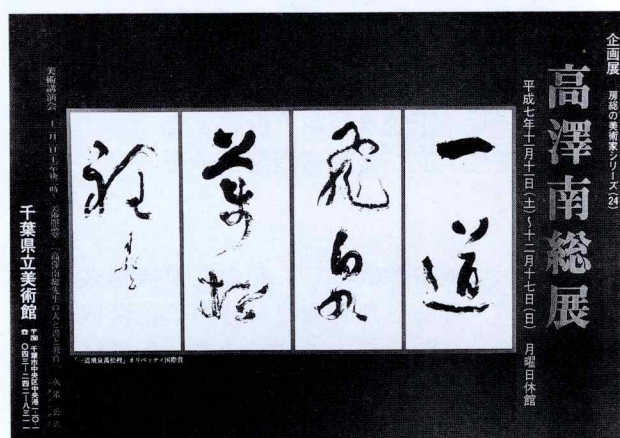 企画展 房総の美術家シリーズ(24)
高澤南総展
平成七年十一月十一日(土)〜十二月十七日(日) 月曜日休館
一道
飛泉
萬松
裡
「一道飛泉萬松裡」オリベッティ国際賞
美術講演会
千葉県立美術館
〒260 千葉市中央区中央港一-一〇-一
☎ 〇四三-二四二-八三一一